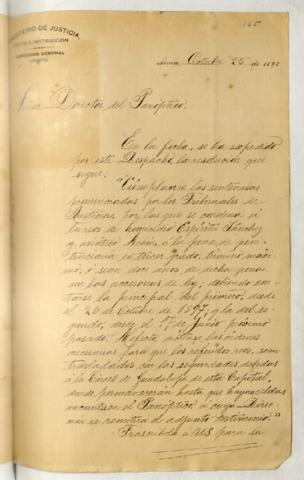 MINISTERIO DE JUSTICIA,
CULTO É INSTRUCCION
DIRECCION GENERAL
165
Lima, Octubre 26 de 1898
Sor Director del Panóptico.
En la fecha, se ha expedido
por este Despacho, la resolución que
sigue:
"Cúmplanse las sentencias
pronunciadas por los Tribunales de
Justicia por las que se condena á
los reos de homicidio Espíritu Sánchez
y asiático á la pena de peni-
tenciaria en tercer grado, término máxi-
mo, ó sean doce años de dicha pena
con las accesorias de ley; debiendo con-
tarse la principal del primero, desde
el 20 de Octubre de 1897 y la del se-
gundo, desde el 1º de Junio próximo
pasado. las órdenes
necesarias para que los referidos reos, sean
trasladados con las seguridades debidas
á la Carcel de Guadalupe de esta Capital,
donde permanecerán hasta que haya celdas
en el Panóptico á cuyo Direc-
tor se remitirá el adjunto testimonio."
Trascríbola á US. para su